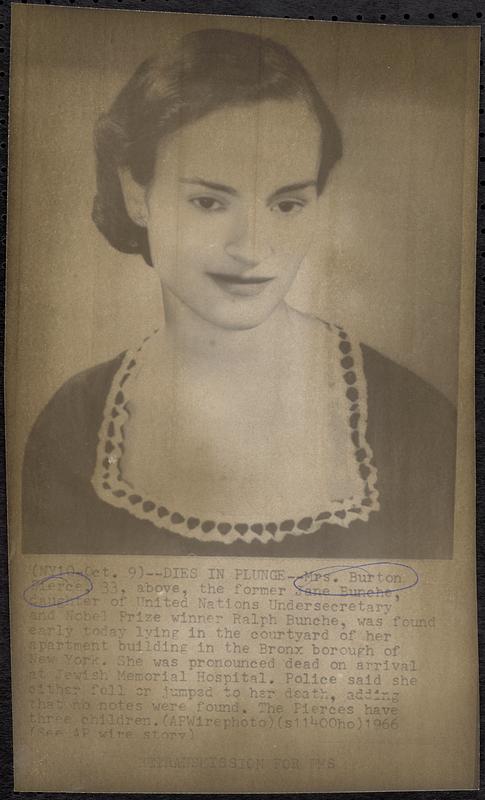 (NY10-Oct. 9)--DIES IN PLUNGE--Mrs. Burton
Pierce, 33, above, the former Jane Bunche,
daughter of United Nations Undersecretary
and Nobel Prize winner Ralph Bunche, was found
early today lying in the courtyard of her
apartment building in the Bronx borough of
New York. She was pronounced dead on arrival
at Jewish Memorial Hospital. Police said she
either fell or jumped to her death, adding
that no notes were found. The Pierces have
three children.(APWirephoto)(s11400ho)1966
(See AP wire story)
RETRANSMISSION FOR PMS